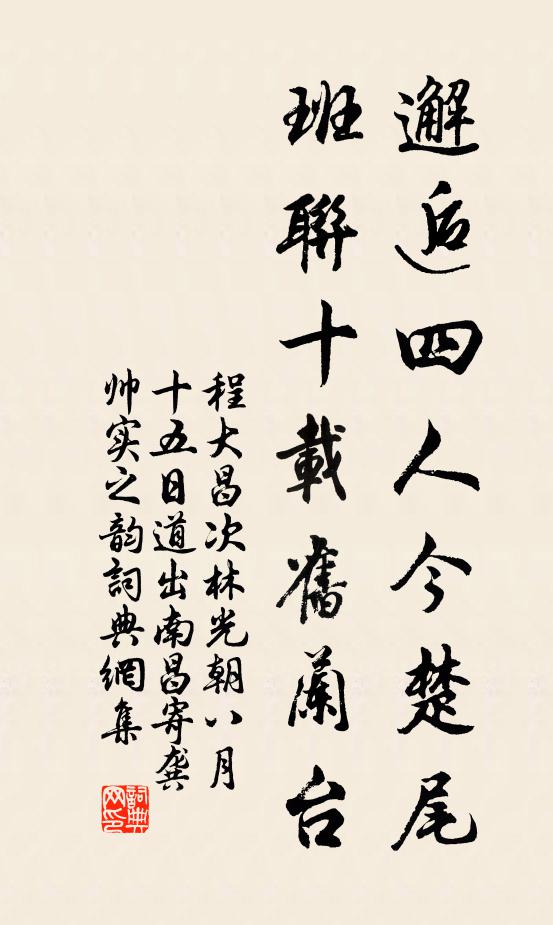 邂逅四人今楚尾
班聯十載舊蘭台
程大昌次林光朝八月
十五日道出南昌寄龔
帅实之韵詞典網集
詞典网印